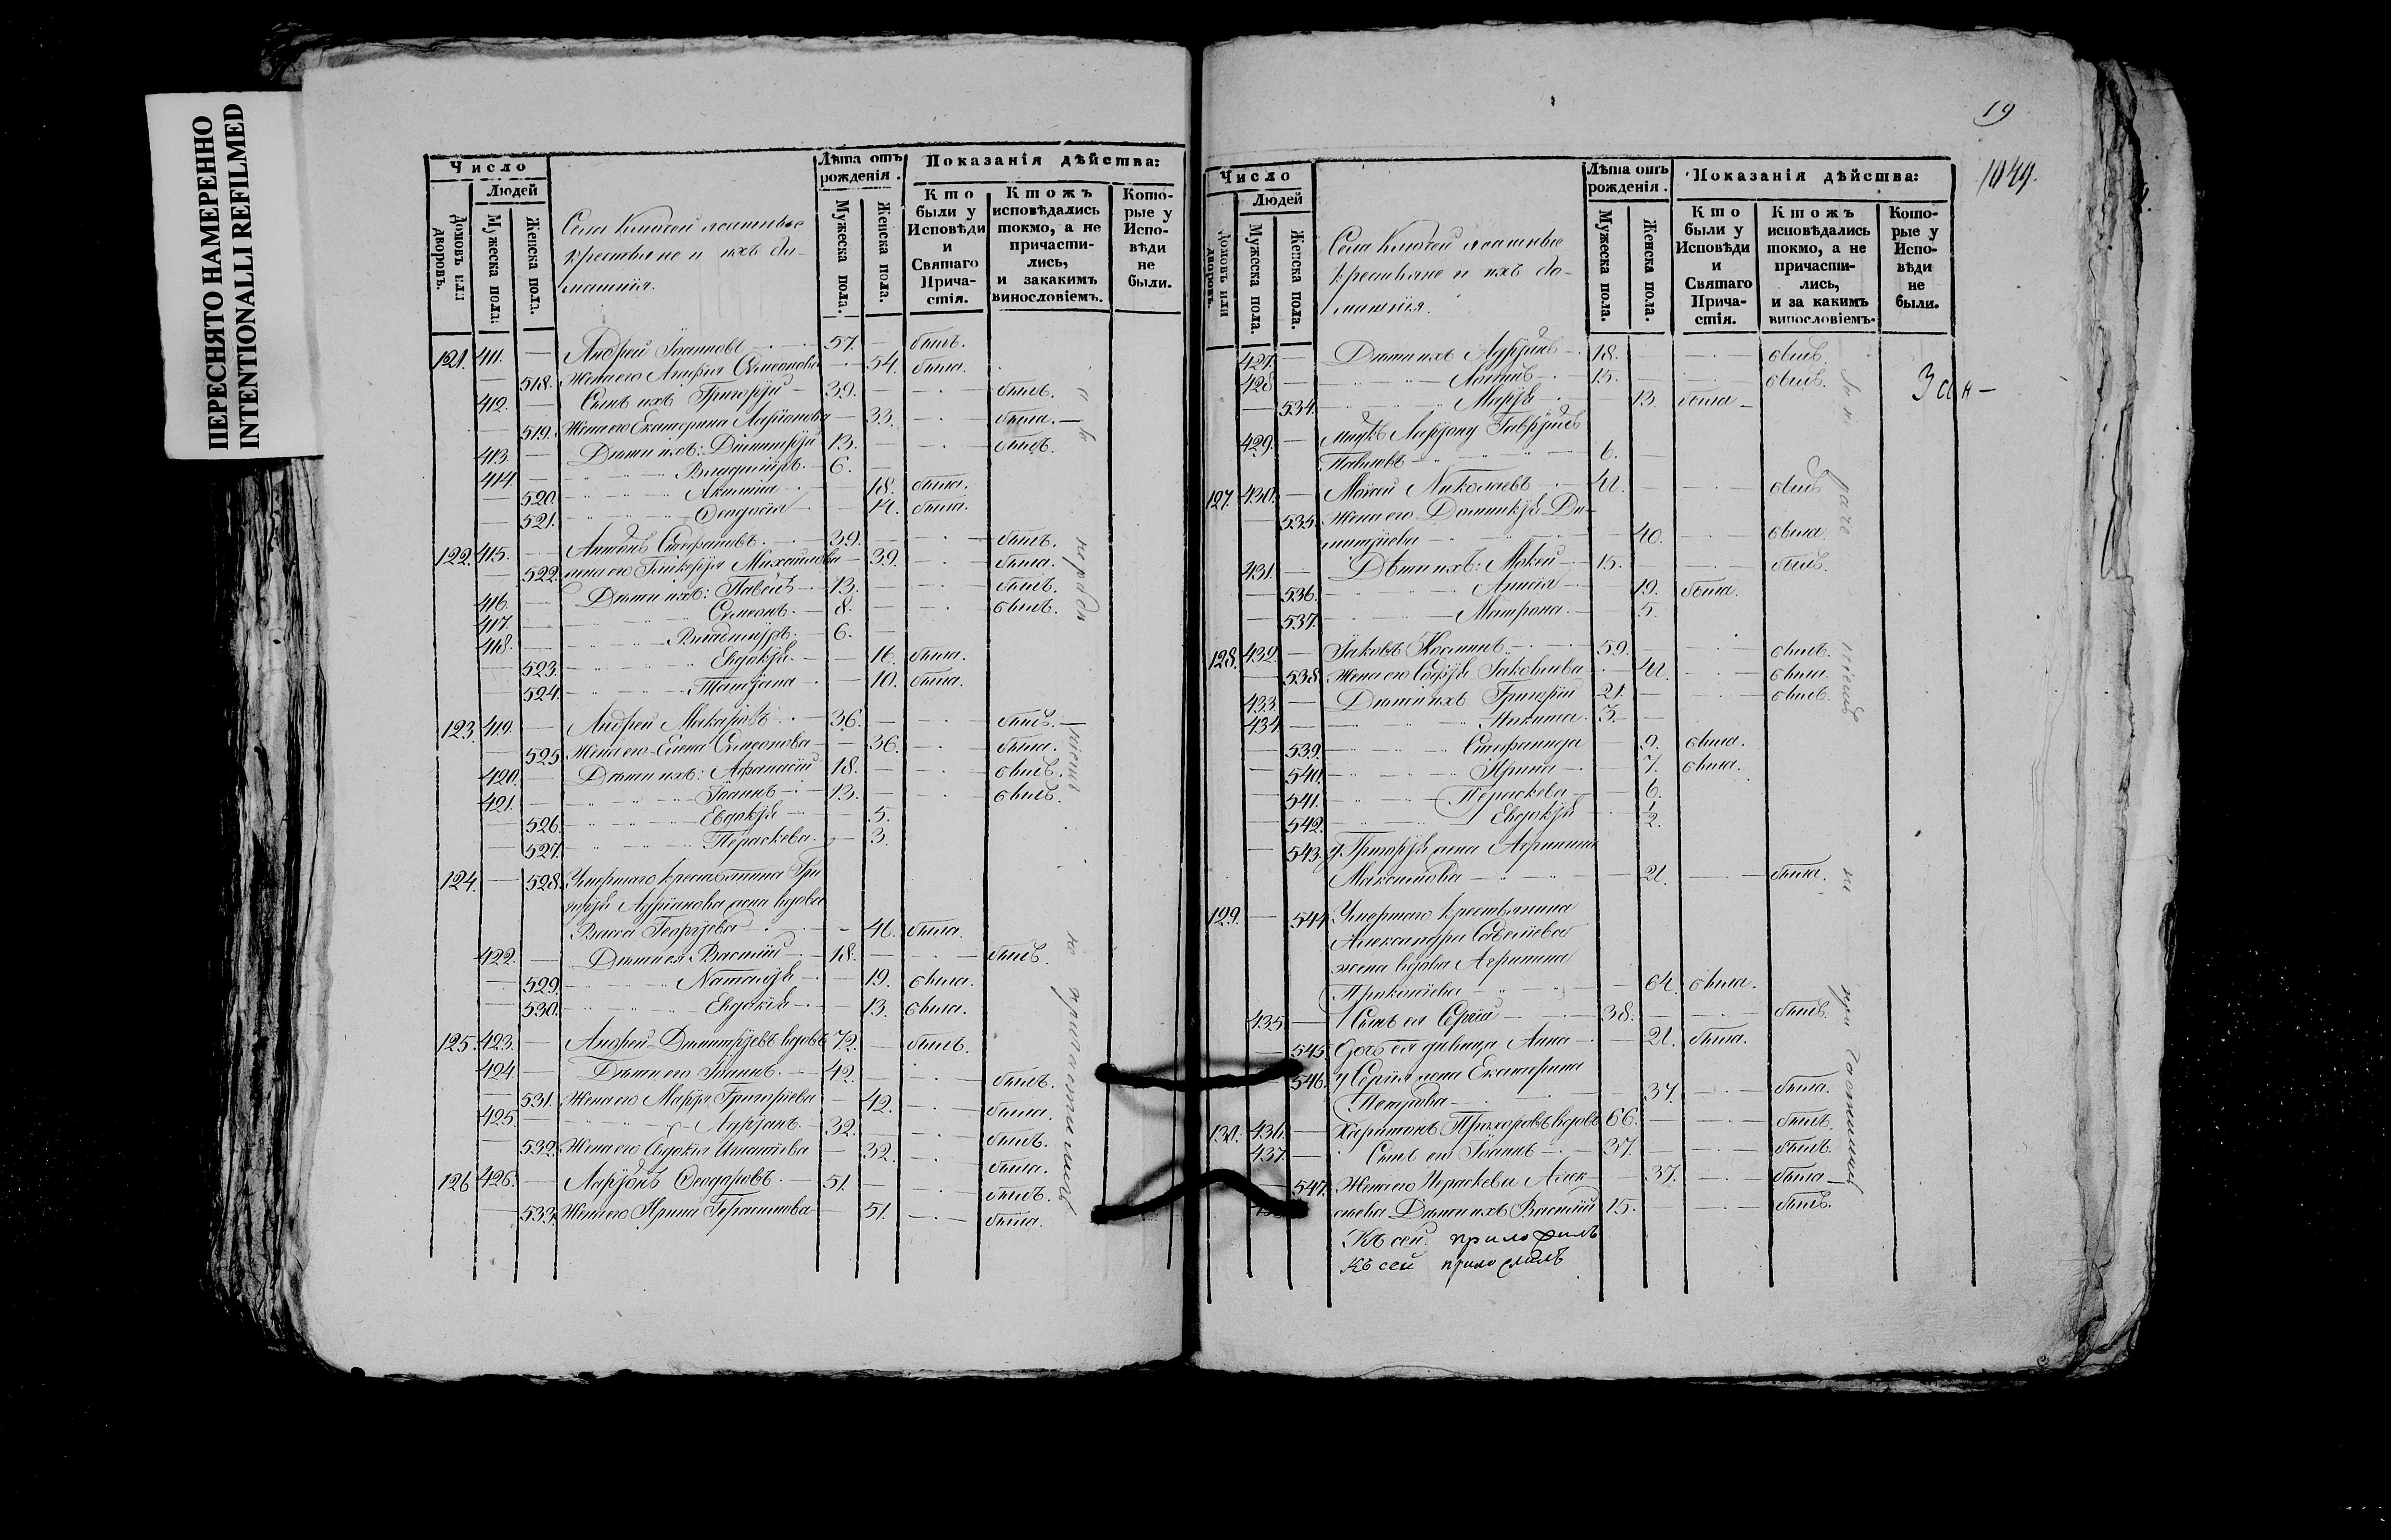 ПЕРЕСНЯТО НАМЕРЕННО
INTENTIONALLI REFILMED
Число
Людей
Домовъ или дворовъ.
Мужеска пола.
Женска пола.
Лѣта отъ рожденія.
Мужеска пола.
Женска пола.
Показанія дѣйства:
Кто были у Исповѣди и Святаго Причастія.
Ктожъ исповѣдались токмо, а не причастились, и закакимъ винословіемъ.
Которые у Исповѣди не были.
крестьяне и ихъ домашнія.
121. 411. — Андрей Іоанновъ — 57. — былъ.
— 518. Жена его Агафія Симеонова — 54. была.
412. — Сынъ ихъ Григорій — 39. — былъ.
— 519. Жена его Екатерина Ларіонова — 33. — была. —
413. — Дѣти ихъ: Димитрій 13. — былъ.
414. — Владиміръ. — 6. —
— 520. Акилина — 18. была.
— 521. Ѳеодосія — 14. была.
122. 415. — Антонъ Стефановъ. — 39. — былъ.
— 522. жена его Гликерія Михайлова — 39. — была.
416. — Дѣти ихъ: Павелъ — 13. — былъ.
417. — Симеонъ. — 8. — былъ.
418. — Владиміръ. — 6. —
— 523. Евдокія. — 16. была.
— 524. Татіана — 10. была.
123. 419. — Андрей Макаровъ. — 36. — былъ. —
— 525. Жена его Елена Симеонова — 36. — была.
420. — Дѣти ихъ: Афанасій 18. — былъ.
421. — Іоаннъ — 13. — былъ.
— 526. Евдокія — 5.
— 527. Параскева. — 3.
124. — 528. Умершаго крестьянина Гри
горія Адріанова жена вдова
Васса Георгіева — 46. была.
422. — Дѣти ея Василій — 18. — былъ.
— 529. Наталія — 19. была.
— 530. Евдокія — 13. была.
125. 423. — Андрей Димитріевъ вдовъ 72. — былъ.
424. — Дѣти его Іоаннъ. — 42. — былъ.
— 531. Жена его Марѳа Григоріева — 42. — была.
425. — Адріанъ. — 32. — былъ.
— 532. Жена его Евдокія Игнатіева — 32. — была.
126 426. — Ларіонъ Ѳеодоровъ. — 51. — былъ.
— 533. Жена его Ирина Герасимова — 51. — была.
19
1049.
Число
Людей
Домовъ или дворовъ.
Мужеска пола.
Женска пола.
Лѣта отъ рожденія.
Мужеска пола.
Женска пола.
Показанія дѣйства:
Кто были у Исповѣди и Святаго Причастія.
Ктожъ исповѣдались токмо, а не причастились, и за какимъ винословіемъ.
Которые у Исповѣди не были.
крестьяне и ихъ домашнія.
427. — Дѣти ихъ Адріанъ — 18. — былъ.
428 — Логинъ — 15. — былъ.
— 534. Марія — 13. была —
429. — внукъ Ларіону Гавріилъ
Павловъ — 6. —
127. 430. — Моисей Николаевъ — 41. — былъ
— 535. Жена его Домникія Ди-
митріева — 40. — была.
431. — Дѣти ихъ: Мокей — 15. — былъ.
— 536. Анисія — 19. была.
— 537. Матрона. — 5.
128. 432. — Іаковъ Косминъ — 59. — былъ.
— 538. Жена его Софія Іаковлева — 41. — была.
433. — Дѣти ихъ Григорій 21. — былъ.
434 — Никита. 3. —
— 539. Стефанида — 9. была.
— 540. Ирина — 7. была.
— 541. Параскева — 6.
— 542. Евдокія — 1/2.
— 543. у Григорія жена Агрипина
Максимова — 21. — была.
129. — 544 Умершаго крестьянина
Александра Савельева
жена вдова Агрипина
Прокопіева — 64. была.
435 — Сынъ ея Сергій — 38. — былъ.
— 545. Дочь ея дѣвица Анна — 21. была.
546. у Сергія жена Екатерина
Петрова — 37. — была.
130. 436. — Харитонъ Прохоровъ вдовъ 66. — былъ.
437. — Сынъ его Іоаннъ — 37. — былъ.
547. Жена его Параскева Алек — 37. — была —
сѣева Дѣти ихъ Василій 15. — былъ.
Къ сей приложилъ
къ сей приложилъ